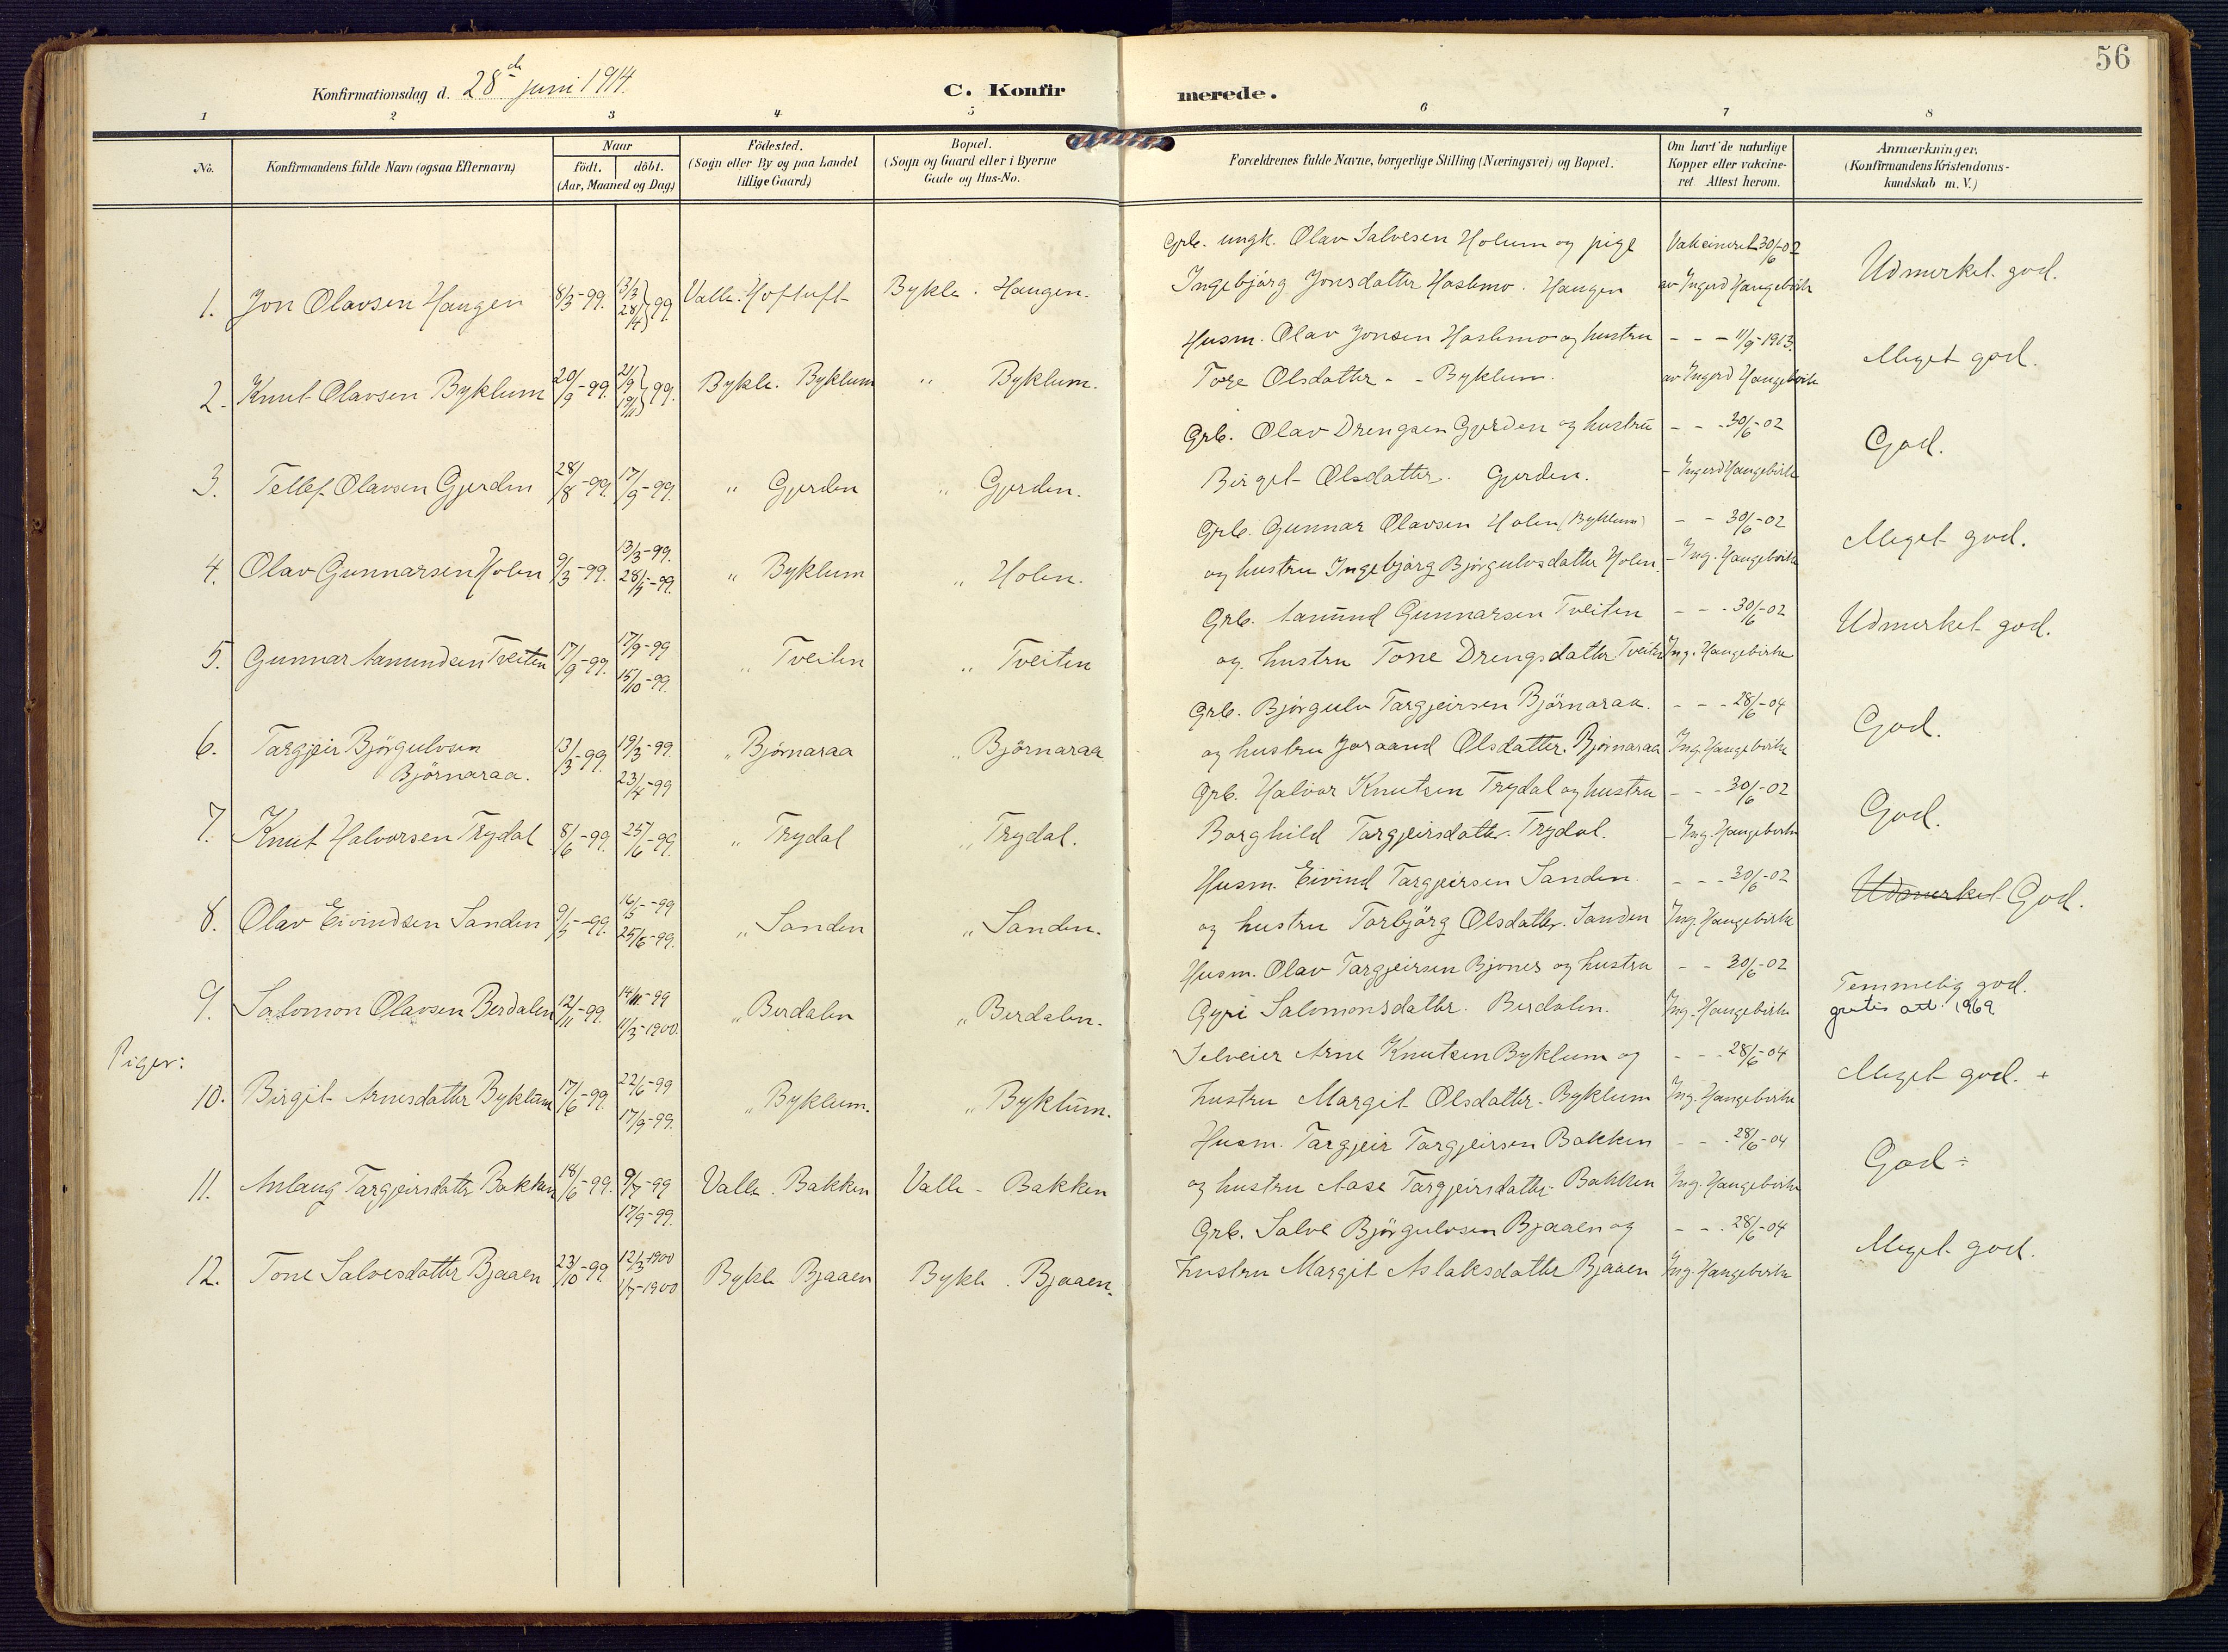 56
Konfirmationsdag d. 28de juni 1914.
C. Konfir merede.
1 2 3 4 5 6 7 8
No.
Konfirmandens fulde Navn (ogsaa Efternavn)
Naar
født. døbt.
(Aar, Maaned og Dag)
Fødested.
(Sogn eller By og paa Landet
tillige Gaard)
Bopæl.
(Sogn og Gaard eller i Byerne
Gade og Hus-No.
Forældrenes fulde Navne, borgerlige Stilling (Næringsvei) og Bopæl.
Om havt de naturlige
Kopper eller vakcine-
ret Attest herom.
Anmærkninger,
(Konfirmandens Kristendoms-
kundskab m. V.)
Grb. ungk. Olav Salvesen Holum og pige Vakcineret 30/6-02
1. Jon Olavsen Haugen 8/3-99. 13/3 28/4 } 99 Valle. Hoftuft Bykle. Haugen. Ingebjørg Jonsdatter Haslemo. Haugen av Ingerd Haugebirke Udmerket god.
Husm. Olav Jonsen Haslemo og hustru - - - 11/9-1913.
2. Knut Olavsen Byklum 20/9-99. 21/9 19/11 } 99. Bykle. Byklum " Byklum. Tore Olsdatter - - Byklum. av Ingerd Haugebirke Meget god.
Grb. Olav Drengsen Gjerden og hustru - - - 30/6-02
3. Tellef Olavsen Gjerden 28/8-99. 17/9-99. " Gjerden " Gjerden. Birgit Olsdatter. Gjerden. - Ingerd Haugebirke God.
Grb. Gunnar Olavsen Holen (Byklum) - - 30/6-02
4. Olav Gunnarsen Holen 9/3-99. 13/3-99. 28/5-99. " Byklum " Holen. og hustru Ingebjørg Bjørgulvsdatter Holen. - Ing. Haugebirke Meget god.
Grb. Aamund Gunnarsen Tveiten - - - 30/6-02
5. Gunnar Aamundsen Tveiten 17/9-99. 17/9-99 15/10-99. " Tveiten " Tveiten og hustru Tone Drengsdatter Tveiten Ing. Haugebirke Udmerket god.
Grb. Bjørgulv Targjeirsen Björnaraa. - - - 28/6-04
6. Targjeir Bjørgulvsen
Björnaraa. 13/3-99. 19/3-99. 23/4-99 " Björnaraa " Björnaraa og hustru Joraand Olsdatter. Björnaraa Ing. Haugebirke God.
Grb. Halvor Knutsen Trydal og hustru - - - 30/6-02
7. Knut Halvorsen Trydal 8/6-99. 25/6-99. " Trydal " Trydal. Borghild Targjeirsdatter. Trydal. - Ing. Haugebirke God.
Husm. Eivind Targjeirsen Sanden. - - - 30/6-02
8. Olav Eivindsen Sanden 9/5-99. 16/5-99 25/6-99. " Sanden " Sanden. og hustru Torbjörg Olsdatter. Sanden Ing. Haugebirke Udmerket God.
Husm. Olav Targjeirsen Bjones og hustru - - 30/6-02
9. Salomon Olavsen Berdalen 12/11-99. 14/11-99 11/3-1900. " Berdalen " Berdalen. Gyri Salomonsdatter. Berdalen. Ing. Haugebirke Temmelig god.
gratis att. 1969
Piger:
Selveier Arne Knutsen Byklum og - - - 28/6-04
10. Birgit Arnesdatter Byklum 17/6-99. 22/6-99 17/9-99. " Byklum. " Byklum. hustru Margit Olsdatter. Byklum Ing. Haugebirke Meget god. +
Husm. Targjeir Targjeirsen Bakken - - . 28/6-04
11. Anlaug Targjeirsdatter Bakken 18/6-99. 9/7-99 17/9-99. Valle. Bakken Valle - Bakken og hustru Aase Targjeirsdatter. Bakken Ing. Haugebirke God ÷
Grb. Salve Bjørgulvsen Bjaaen og - - . 28/6-04
12. Tone Salvesdatter Bjaaen 23/10-99. 12/3-1900 1/7-1900 Bykle Bjaaen Bykle. Bjaaen. hustru Margit Aslaksdatter Bjaaen Ing. Haugebirke Meget god.